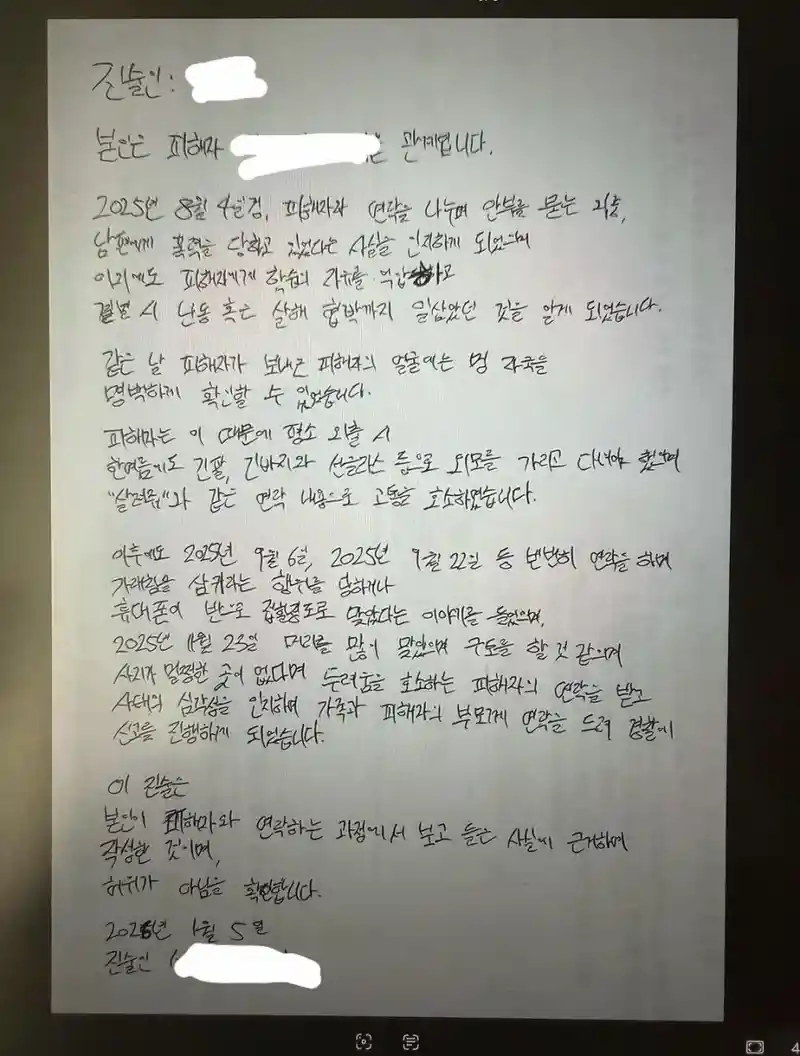 진술인:
본인은 피해자 관계입니다.
2025년 8월 4일경, 피해자와 연락을 나누며 안부를 묻는 와중,
남편에게 폭력을 당하고 있었다는 사실을 인지하게 되었으며
이외에도 피해자에게 학습의 자유를 억압하고
결별 시 난동 혹은 살해 협박까지 일삼았던 것을 알게 되었습니다.
같은 날 피해자가 보내온 피해자의 얼굴에는 멍 자국을
명백하게 확인할 수 있었습니다.
피해자는 이 때문에 평소 외출 시
한여름에도 긴팔, 긴바지와 선글라스 등으로 외모를 가리고 다녀야 했으며
"살려줘"와 같은 연락 내용으로 고통을 호소하였습니다.
이후에도 2025년 9월 6일, 2025년 9월 22일 등 빈번히 연락을 하며
가래침을 삼키라는 행위를 당하거나
휴대폰이 반으로 접힐정도로 맞았다는 이야기를 들었으며,
2025년 11월 23일 머리를 많이 맞았으며 구토를 할 것 같으며
사지가 멀쩡한 곳이 없다며 두려움을 호소하는 피해자의 연락을 받고
사태의 심각성을 인지하며 가족과 피해자의 부모에게 연락을 드려 경찰에
신고를 진행하게 되었습니다.
이 진술은
본인이 피해자와 연락하는 과정에서 보고 들은 사실에 근거하며
작성한 것이며,
허위가 아님을 확인합니다.
2026년 1월 5일
진술인
4